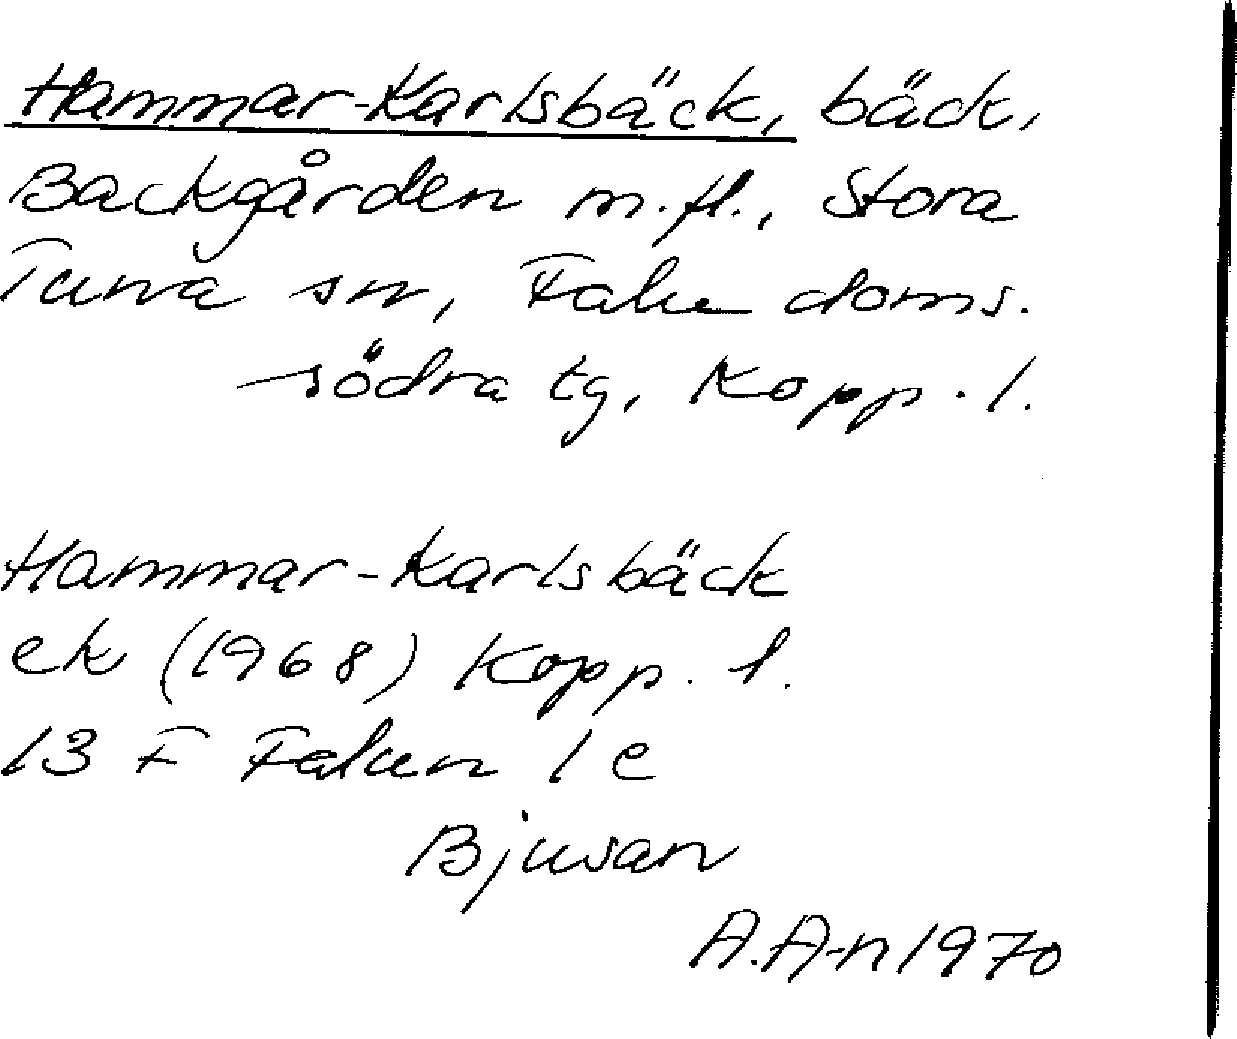 Hammar-Karlsbäck, bäck,
Backgården m.fl., Stora
Tuna sn, Falu doms.
södra tg, Kopp. l.
Hammar-Karlsbäck
ek (1968) Kopp. l.
13 F Falun 1 e
Bjusan
A.A-n 1970